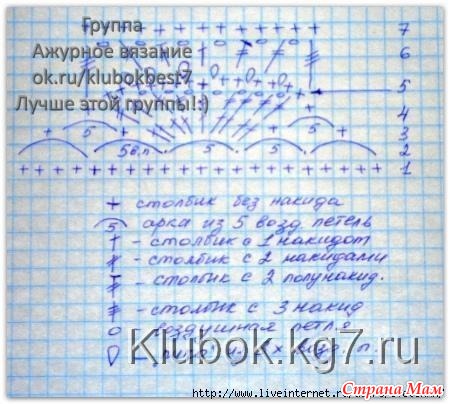 Группа
Ажурное вязание
ok.ru/klubokbest7
Лучше этой группы!:)
7
6
5
4
3
2
1
5 5
5в.п 5 5
+ столбик без накида
5 арка из 5 возд. петель
- столбик с 1 накидом
- столбик с 2 накидами
- столбик с 2 полунакид.
- столбик с 3 накид
о - воздушная петля
Klubok.kg7.ru
http://www.liveinternet.r
Страна Мам